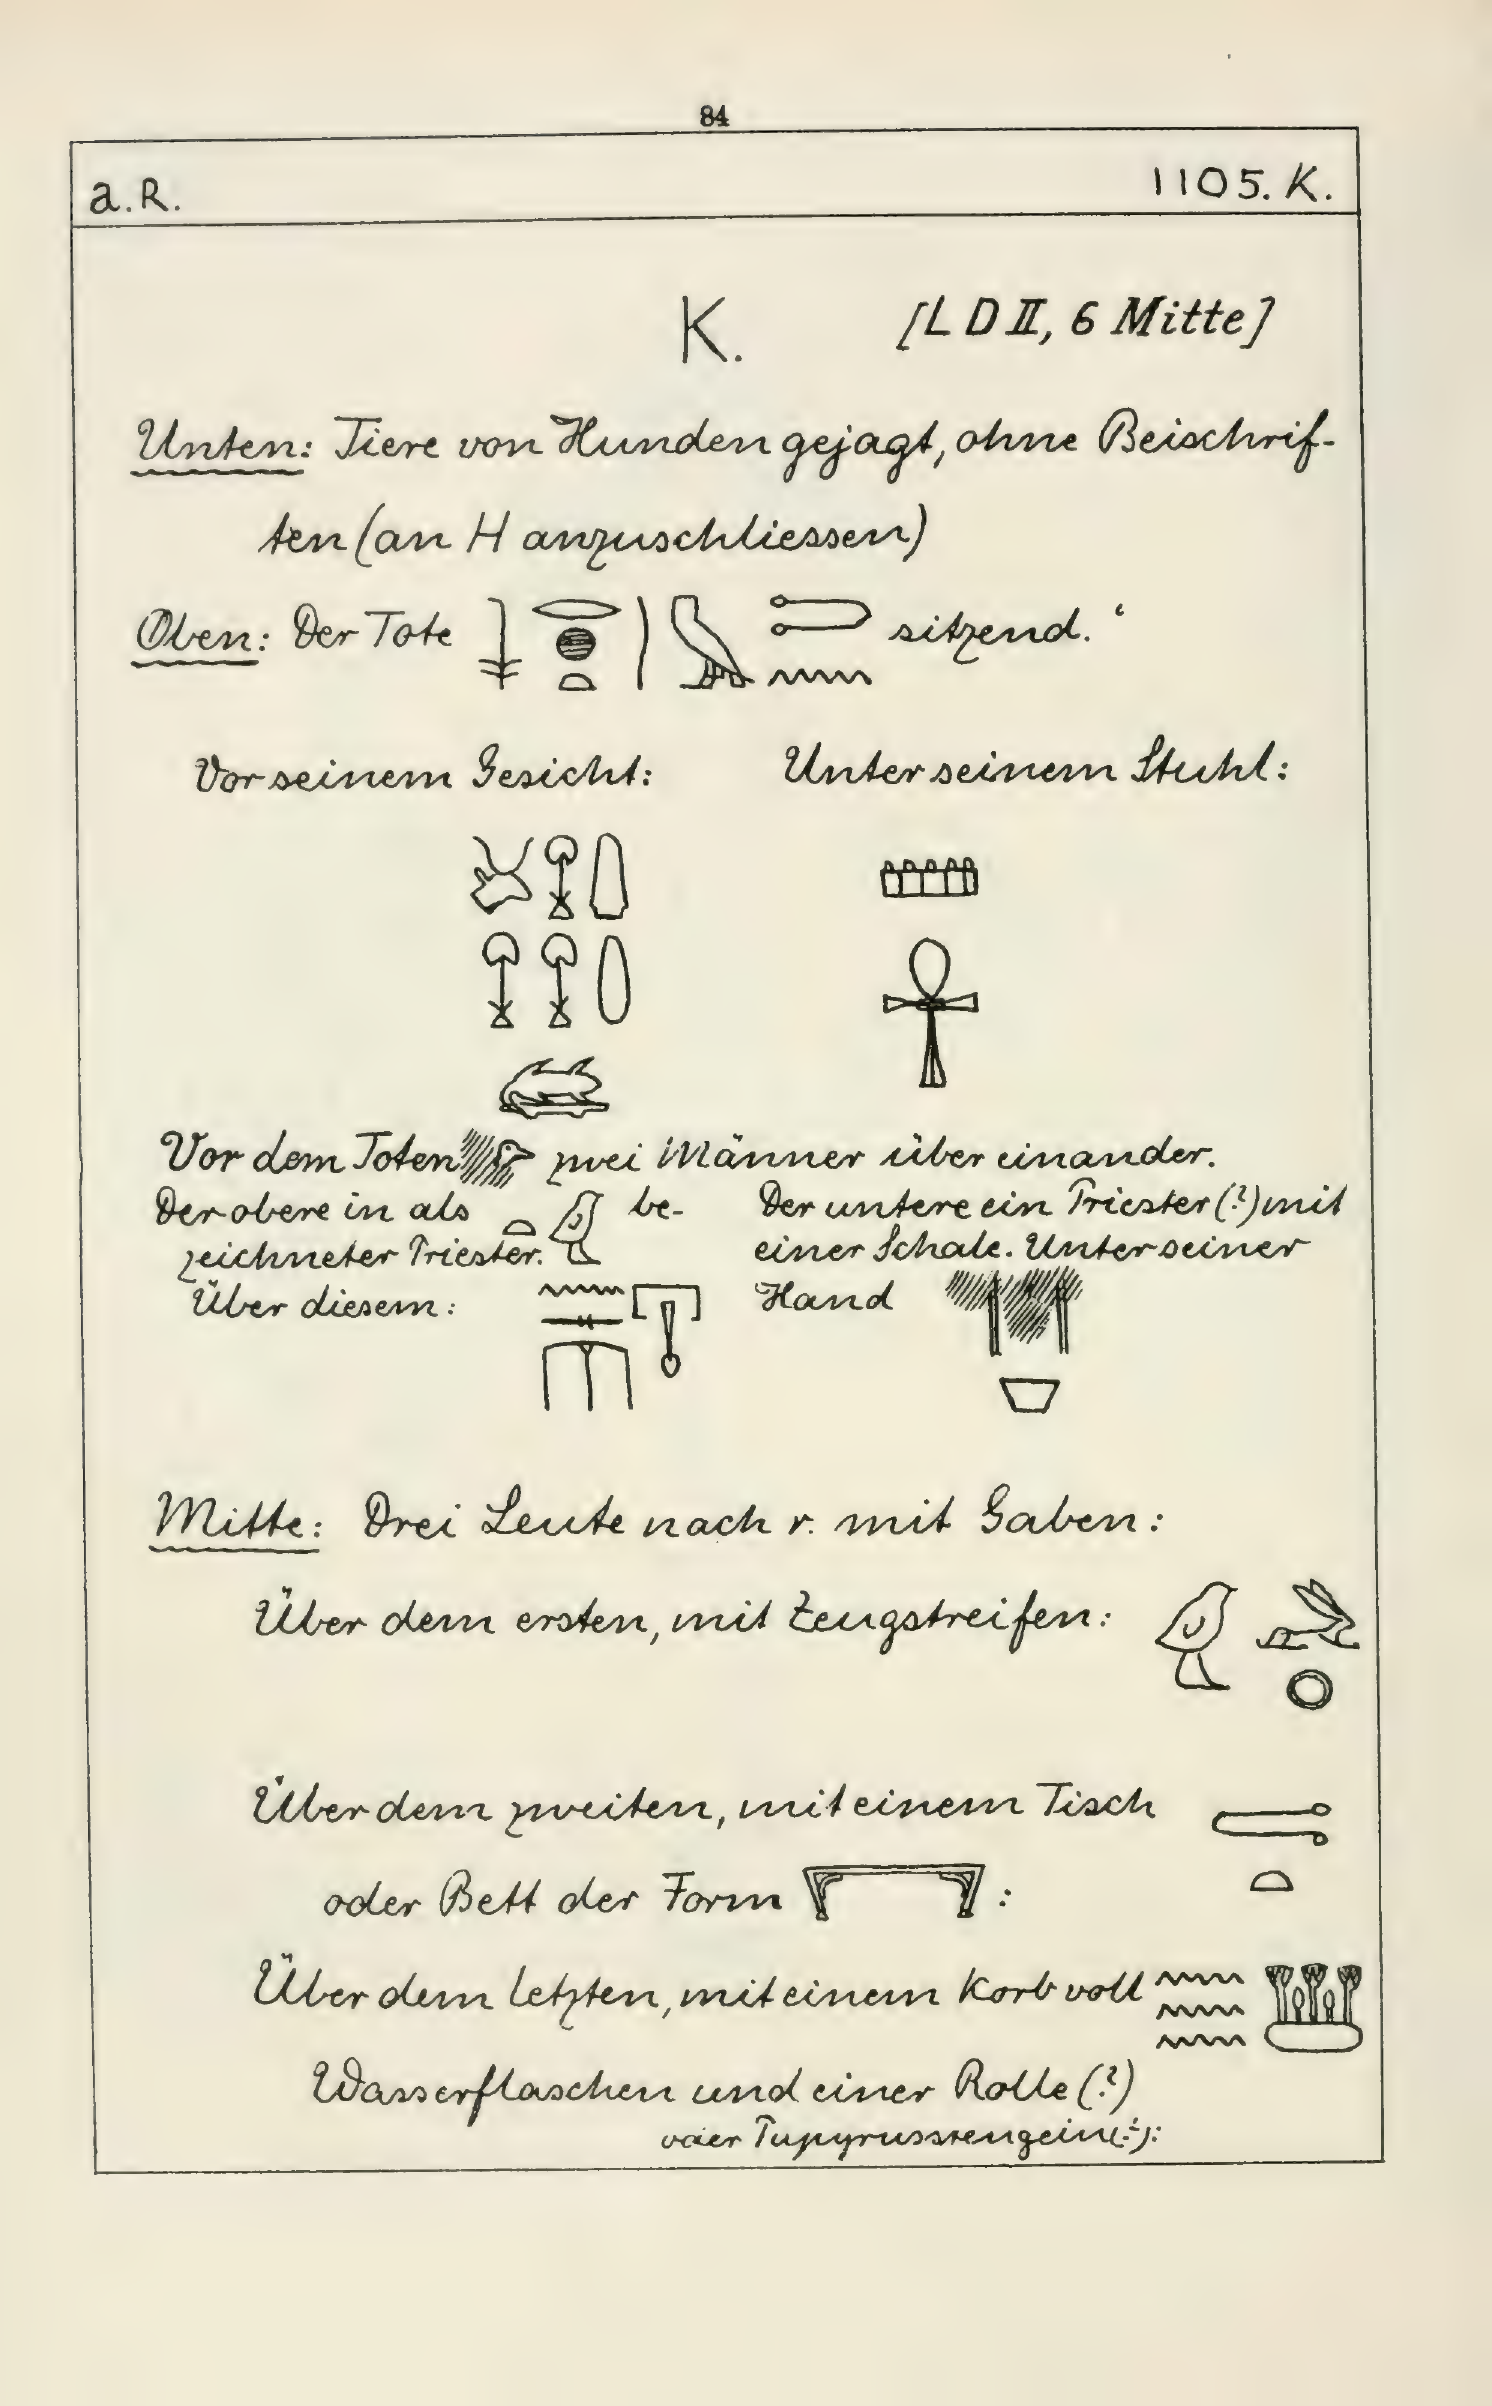 84
a.R. 1105. K.
K. [L D II, 6 Mitte]
Unten: Tiere von Hunden gejagt, ohne Beischrif-
ten (an H anzuschliessen)
Oben: Der Tote sitzend.
Vor seinem Gesicht: Unter seinem Stuhl:
Vor dem Toten zwei Männer über einander.
Der obere in als be-
zeichneter Priester.
Über diesem:
Der untere ein Priester (?) mit
einer Schale. Unter seiner
Hand
Mitte: Drei Leute nach r. mit Gaben:
Über dem ersten, mit Zeugstreifen:
Über dem zweiten, mit einem Tisch
oder Bett der Form :
Über dem letzten, mit einem Korb voll
Wasserflaschen und einer Rolle (?)
oder Papyrusstengeln (?):